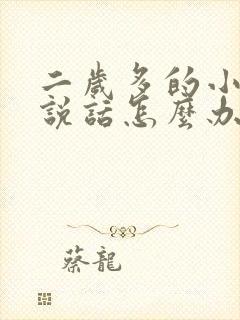 二歲多的小
說話怎麼办
蔡龍